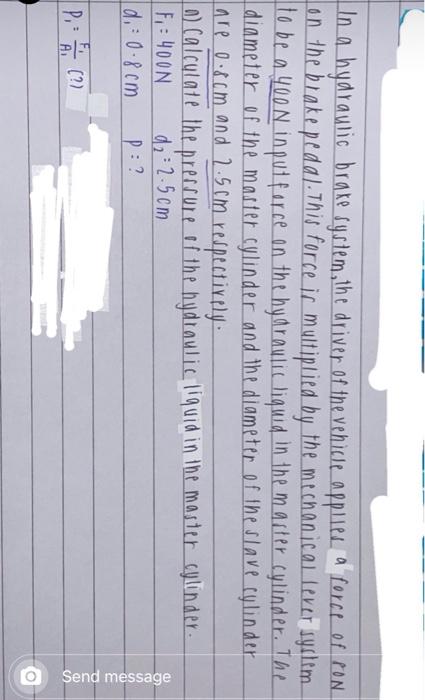 In a hydraulic brake system, the driver of the vehicle applies a force of 80N
on the brake pedal. This force is multiplied by the mechanical lever system
to be a 400N input force on the hydraulic liquid in the master cylinder. The
diameter of the master cylinder and the diameter of the slave cylinder
are 0.8cm and 2.5cm respectively.
a) Calculate the pressure of the hydraulic liquid in the master cylinder.
F₁ = 400N d₂ = 2.5cm
d₁ = 0.8cm P = ?
P₁ = F₁/A₁ (?)
Send message